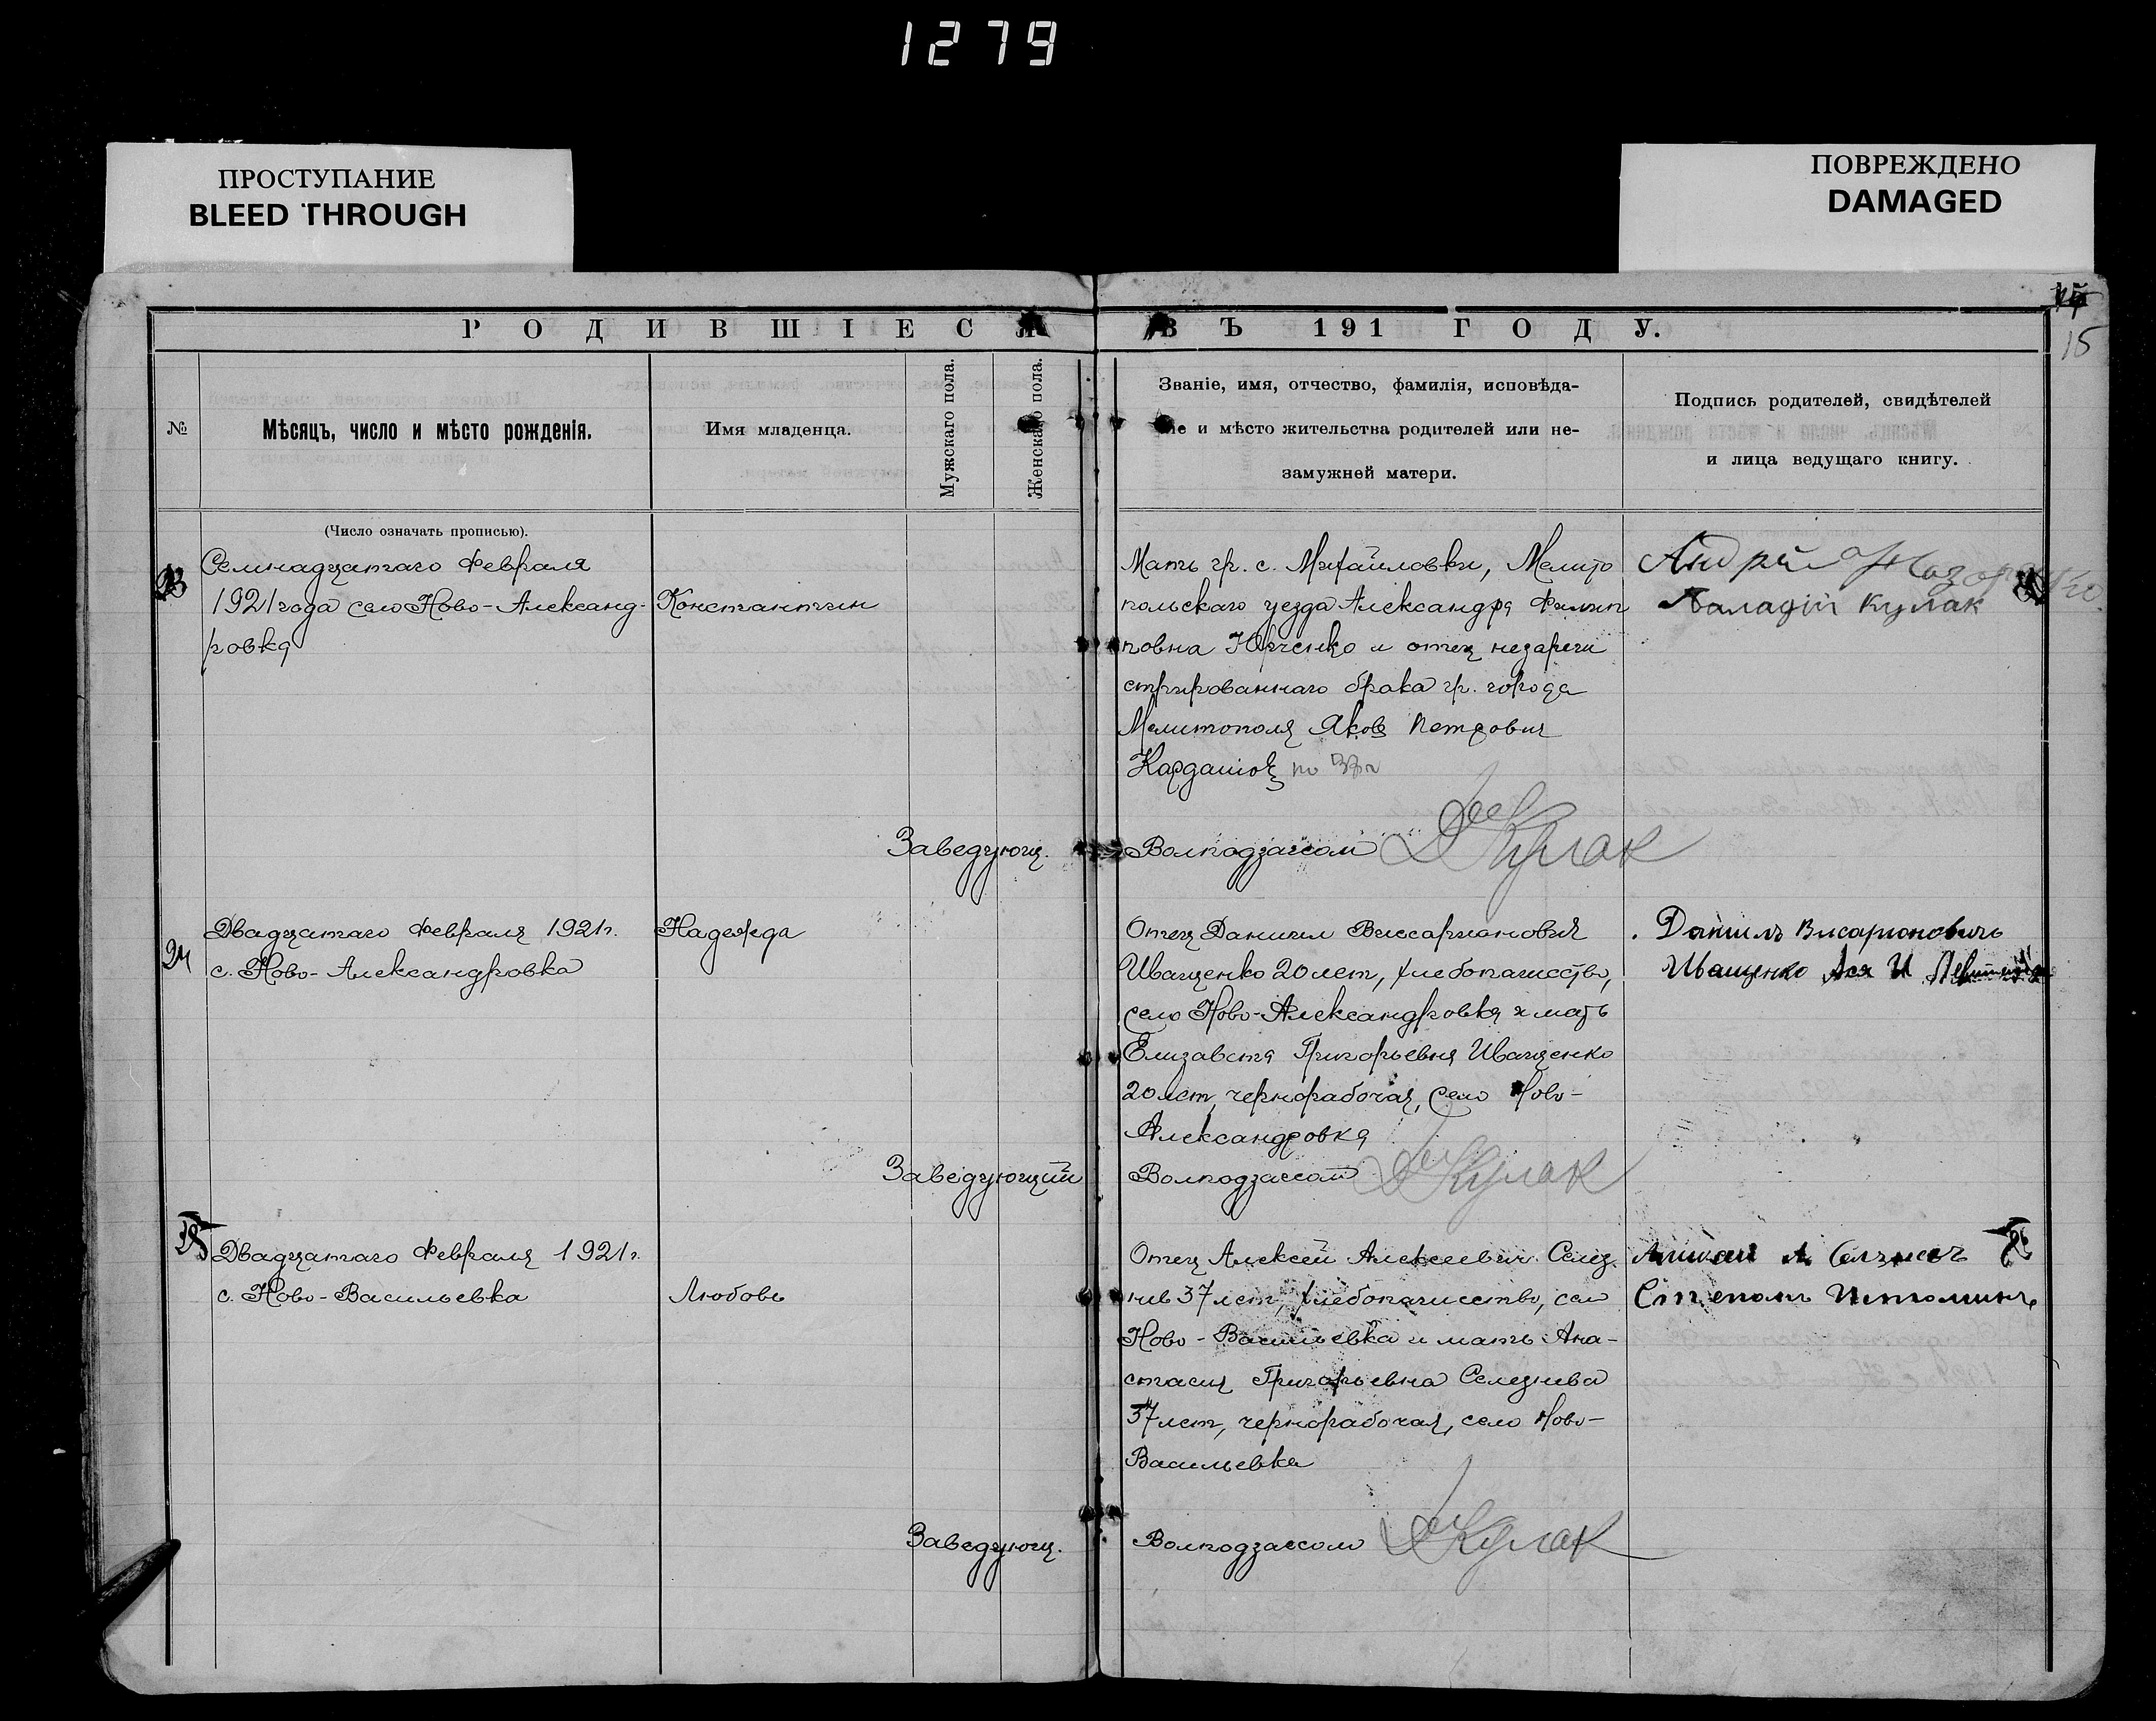 1279
ПРОСТУПАНИЕ
BLEED THROUGH
ПОВРЕЖДЕНО
DAMAGED
РОДИВШІЕСЯ ВЪ 191 ГОДУ.
15
№
Мѣсяцъ, число и мѣсто рожденія.
Имя младенца.
Мужскаго пола.
Женскаго пола.
Званіе, имя, отчество, фамилія, исповѣда-
ніе и мѣсто жительства родителей или не-
замужней матери.
Подпись родителей, свидѣтелей
и лица ведущаго книгу.
(Число означать прописью).
23
Семнадцатаго Февраля
1921 года село Ново-Александ-
ровка
Константин
Мать гр. с. Михайловки, Мелито
польскаго уезда Александра Филип
повна Юрченко и отец незареги
стрированнаго брака гр. города
Мелитополя Яков Петрович
Кардашов по
Андрей
Паладій Кулак
Заведующ. Волподзагсом Кулак
24
Двадцатаго Февраля 1921 г.
с. Ново-Александровка
Надежда
Отец Даниил Виссарианович
Иващенко 20 лет, хлебопашество,
село Ново-Александровка и мать
Елизавета Григорьевна Иващенко
20 лет, чернорабочая, село Ново-
Александровка
Данилъ Висарионовичъ
Иващенко
Заведующий Волподзагсом Кулак
25
Двадцатаго Февраля 1921 г.
с. Ново-Васильевка
Любовь
Отец Алексей Алексеевич Селез
нев 37 лет, хлебопашество, село
Ново-Васильевка и мать Ана-
стасия Григорьевна Селезнева
37 лет, чернорабочая, село Ново-
Васильевка
Степанъ Истоминъ
Заведующ. Волподзагсом Кулак